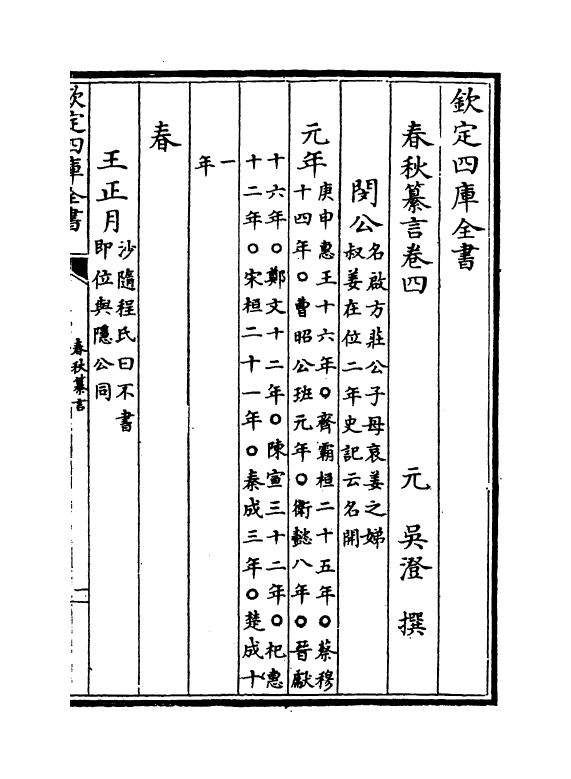 欽定四庫全書
春秋纂言卷四
元 吳澄 撰
閔公名啟方莊公子母哀姜之娣
叔姜在位二年史記云名開
元年庚申惠王十六年○齊霸桓二十五年○蔡穆
十四年○曹昭公班元年○衛懿八年○晉獻
十六年○鄭文十二年○陳宣三十二年○杞惠
十二年○宋桓二十一年○秦成三年○楚成十
一年
春
王正月沙隨程氏曰不書
即位與隱公同
欽定四庫全書
春秋纂言
一